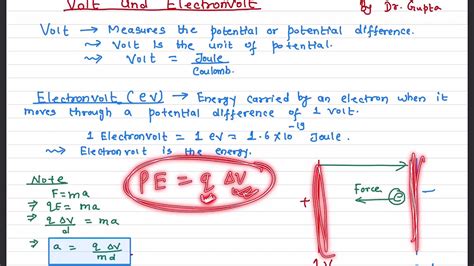 Volt und Electronvolt
By Dr. Gupta
Volt → Measures the potential or potential difference.
→ Volt is the unit of potential.
→ Volt = Joule
Coulomb.
Electronvolt (ev) → Energy carried by an electron when it
moves through a potential difference of 1 Volt.
1 Electronvolt = 1 eV = 1.6 x 10^-19 Joule.
→ Electronvolt is the energy.
PE = q ΔV
Note
F = ma
⇒ qE = ma
⇒ q ΔV/d = ma
a = q ΔV/md
+
Force
e
−
1 V